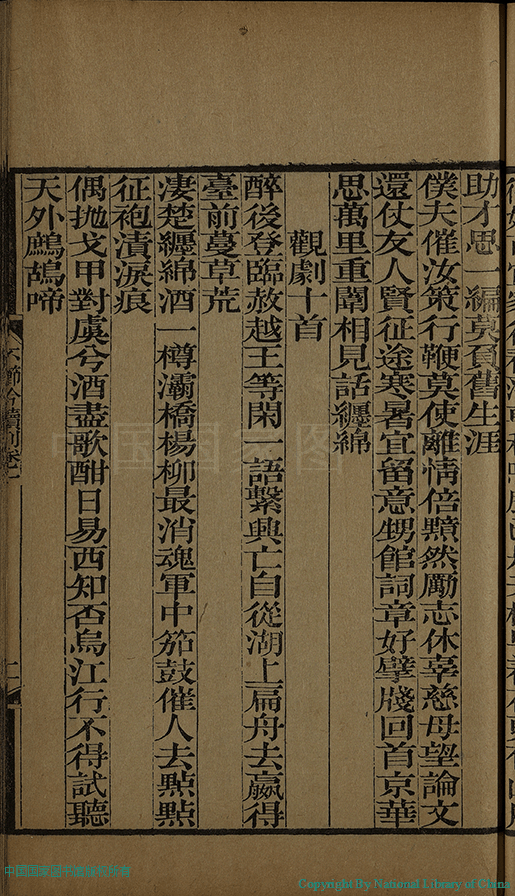 助才思一編莫負舊生涯
僕夫催汝策行鞭莫使離情倍黯然勵志休辜慈母望論文
還仗友人賢征途寒暑宜留意甥館詞章好擘牋回首京華
思萬里重闈相見話纏綿
觀劇十首
醉後登臨赦越王等閑一語繫興亡自從湖上扁舟去嬴得
臺前蔓草荒
淒楚纏綿酒一樽灞橋楊柳最消魂軍中笳鼓催人去點點
征袍漬淚痕
偶拋戈甲對虞兮酒盡歌酣日易西知否烏江行不得試聽
天外鷓鴣啼
中国国家图
中国国家图书馆版权所有
Copyright By National Library of China